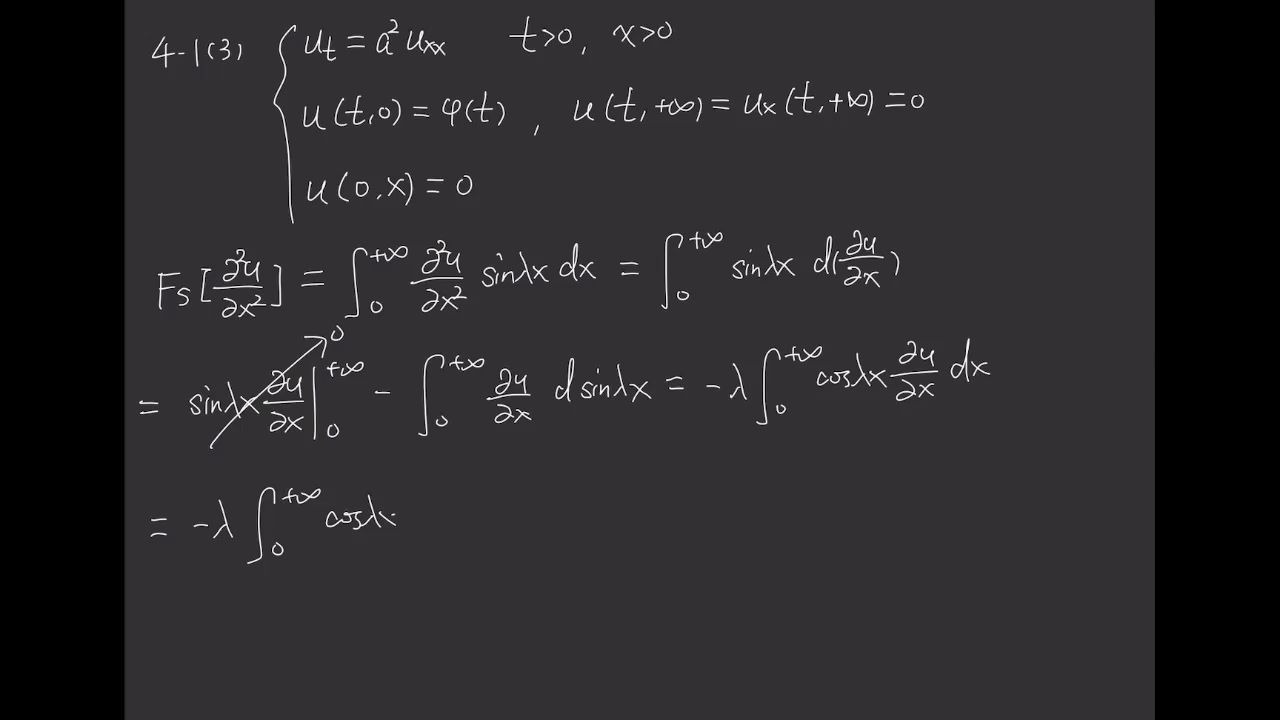 4-1(3) { u_t = a² u_xx   t>0, x>0
u(t,0) = φ(t) , u(t,+∞) = u_x(t,+∞) = 0
u(0,x) = 0
Fs[∂²u/∂x²] = ∫₀^{+∞} ∂²u/∂x² sinλx dx = ∫₀^{+∞} sinλx d(∂u/∂x)
= sinλx ∂u/∂x |₀^{+∞} → 0 - ∫₀^{+∞} ∂u/∂x d sinλx = -λ ∫₀^{+∞} cosλx ∂u/∂x dx
= -λ ∫₀^{+∞} cosλx